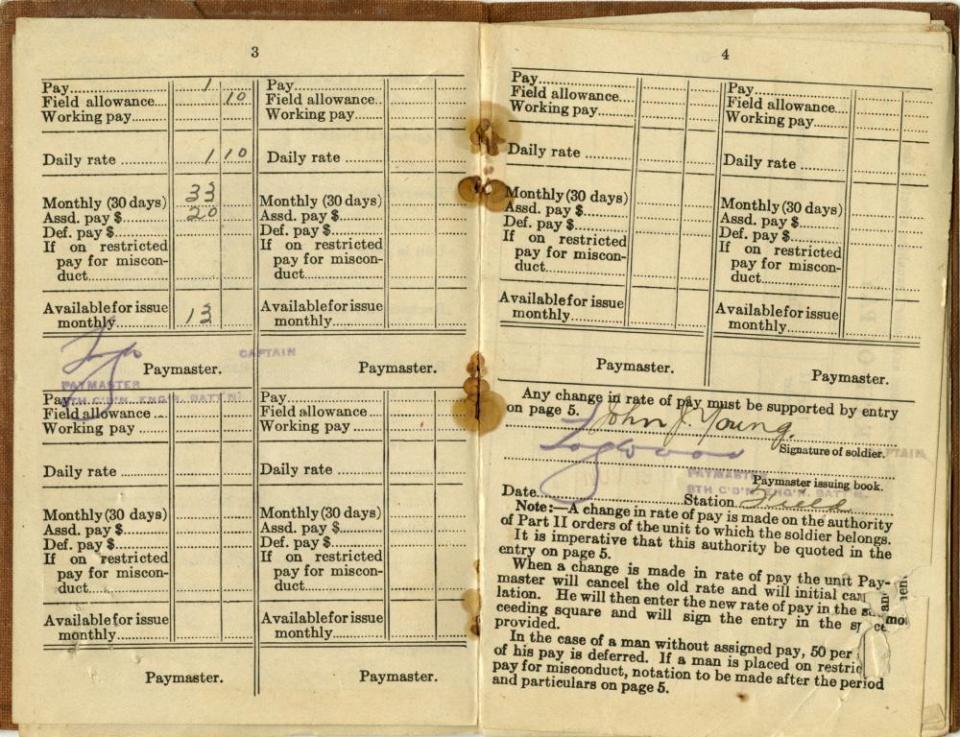 3
Pay.......... 1
Field allowance... 10
Working pay......
Daily rate .......... 1 10
Monthly (30 days) 33
Assd. pay $....... 20
Def. pay $.......
If on restricted
pay for miscon-
duct..............
Available for issue
monthly.......... 13
Paymaster.
PAYMASTER
Pay..............
Field allowance..
Working pay......
Daily rate ..........
Monthly (30 days)
Assd. pay $.......
Def. pay $.......
If on restricted
pay for miscon-
duct..............
Available for issue
monthly..........
CAPTAIN
Paymaster.
Pay..............
Field allowance ...
Working pay......
Daily rate ..........
Monthly (30 days)
Assd. pay $.......
Def. pay $.......
If on restricted
pay for miscon-
duct..............
Available for issue
monthly..........
Paymaster.
Pay..............
Field allowance...
Working pay......
Daily rate ..........
Monthly (30 days)
Assd. pay $.......
Def. pay $.......
If on restricted
pay for miscon-
duct..............
Available for issue
monthly..........
Paymaster.
4
Pay..............
Field allowance....
Working pay......
Daily rate ..........
Monthly (30 days)
Assd. pay $.......
Def. pay $.......
If on restricted
pay for miscon-
duct..............
Available for issue
monthly..........
Paymaster.
Pay..............
Field allowance...
Working pay......
Daily rate ..........
Monthly (30 days)
Assd. pay $.......
Def. pay $.......
If on restricted
pay for miscon-
duct..............
Available for issue
monthly..........
Paymaster.
Any change in rate of pay must be supported by entry
on page 5.
John J. Young.
Signature of soldier.
PAYMASTER
Paymaster issuing book.
Date.......... Station
Note:—A change in rate of pay is made on the authority
of Part II orders of the unit to which the soldier belongs.
It is imperative that this authority be quoted in the
entry on page 5.
When a change is made in rate of pay the unit Pay-
master will cancel the old rate and will initial
lation. He will then enter the new rate of pay in the
ceeding square and will sign the entry in the
provided.
In the case of a man without assigned pay, 50 per
of his pay is deferred. If a man is placed on
pay for misconduct, notation to be made after the period
and particulars on page 5.